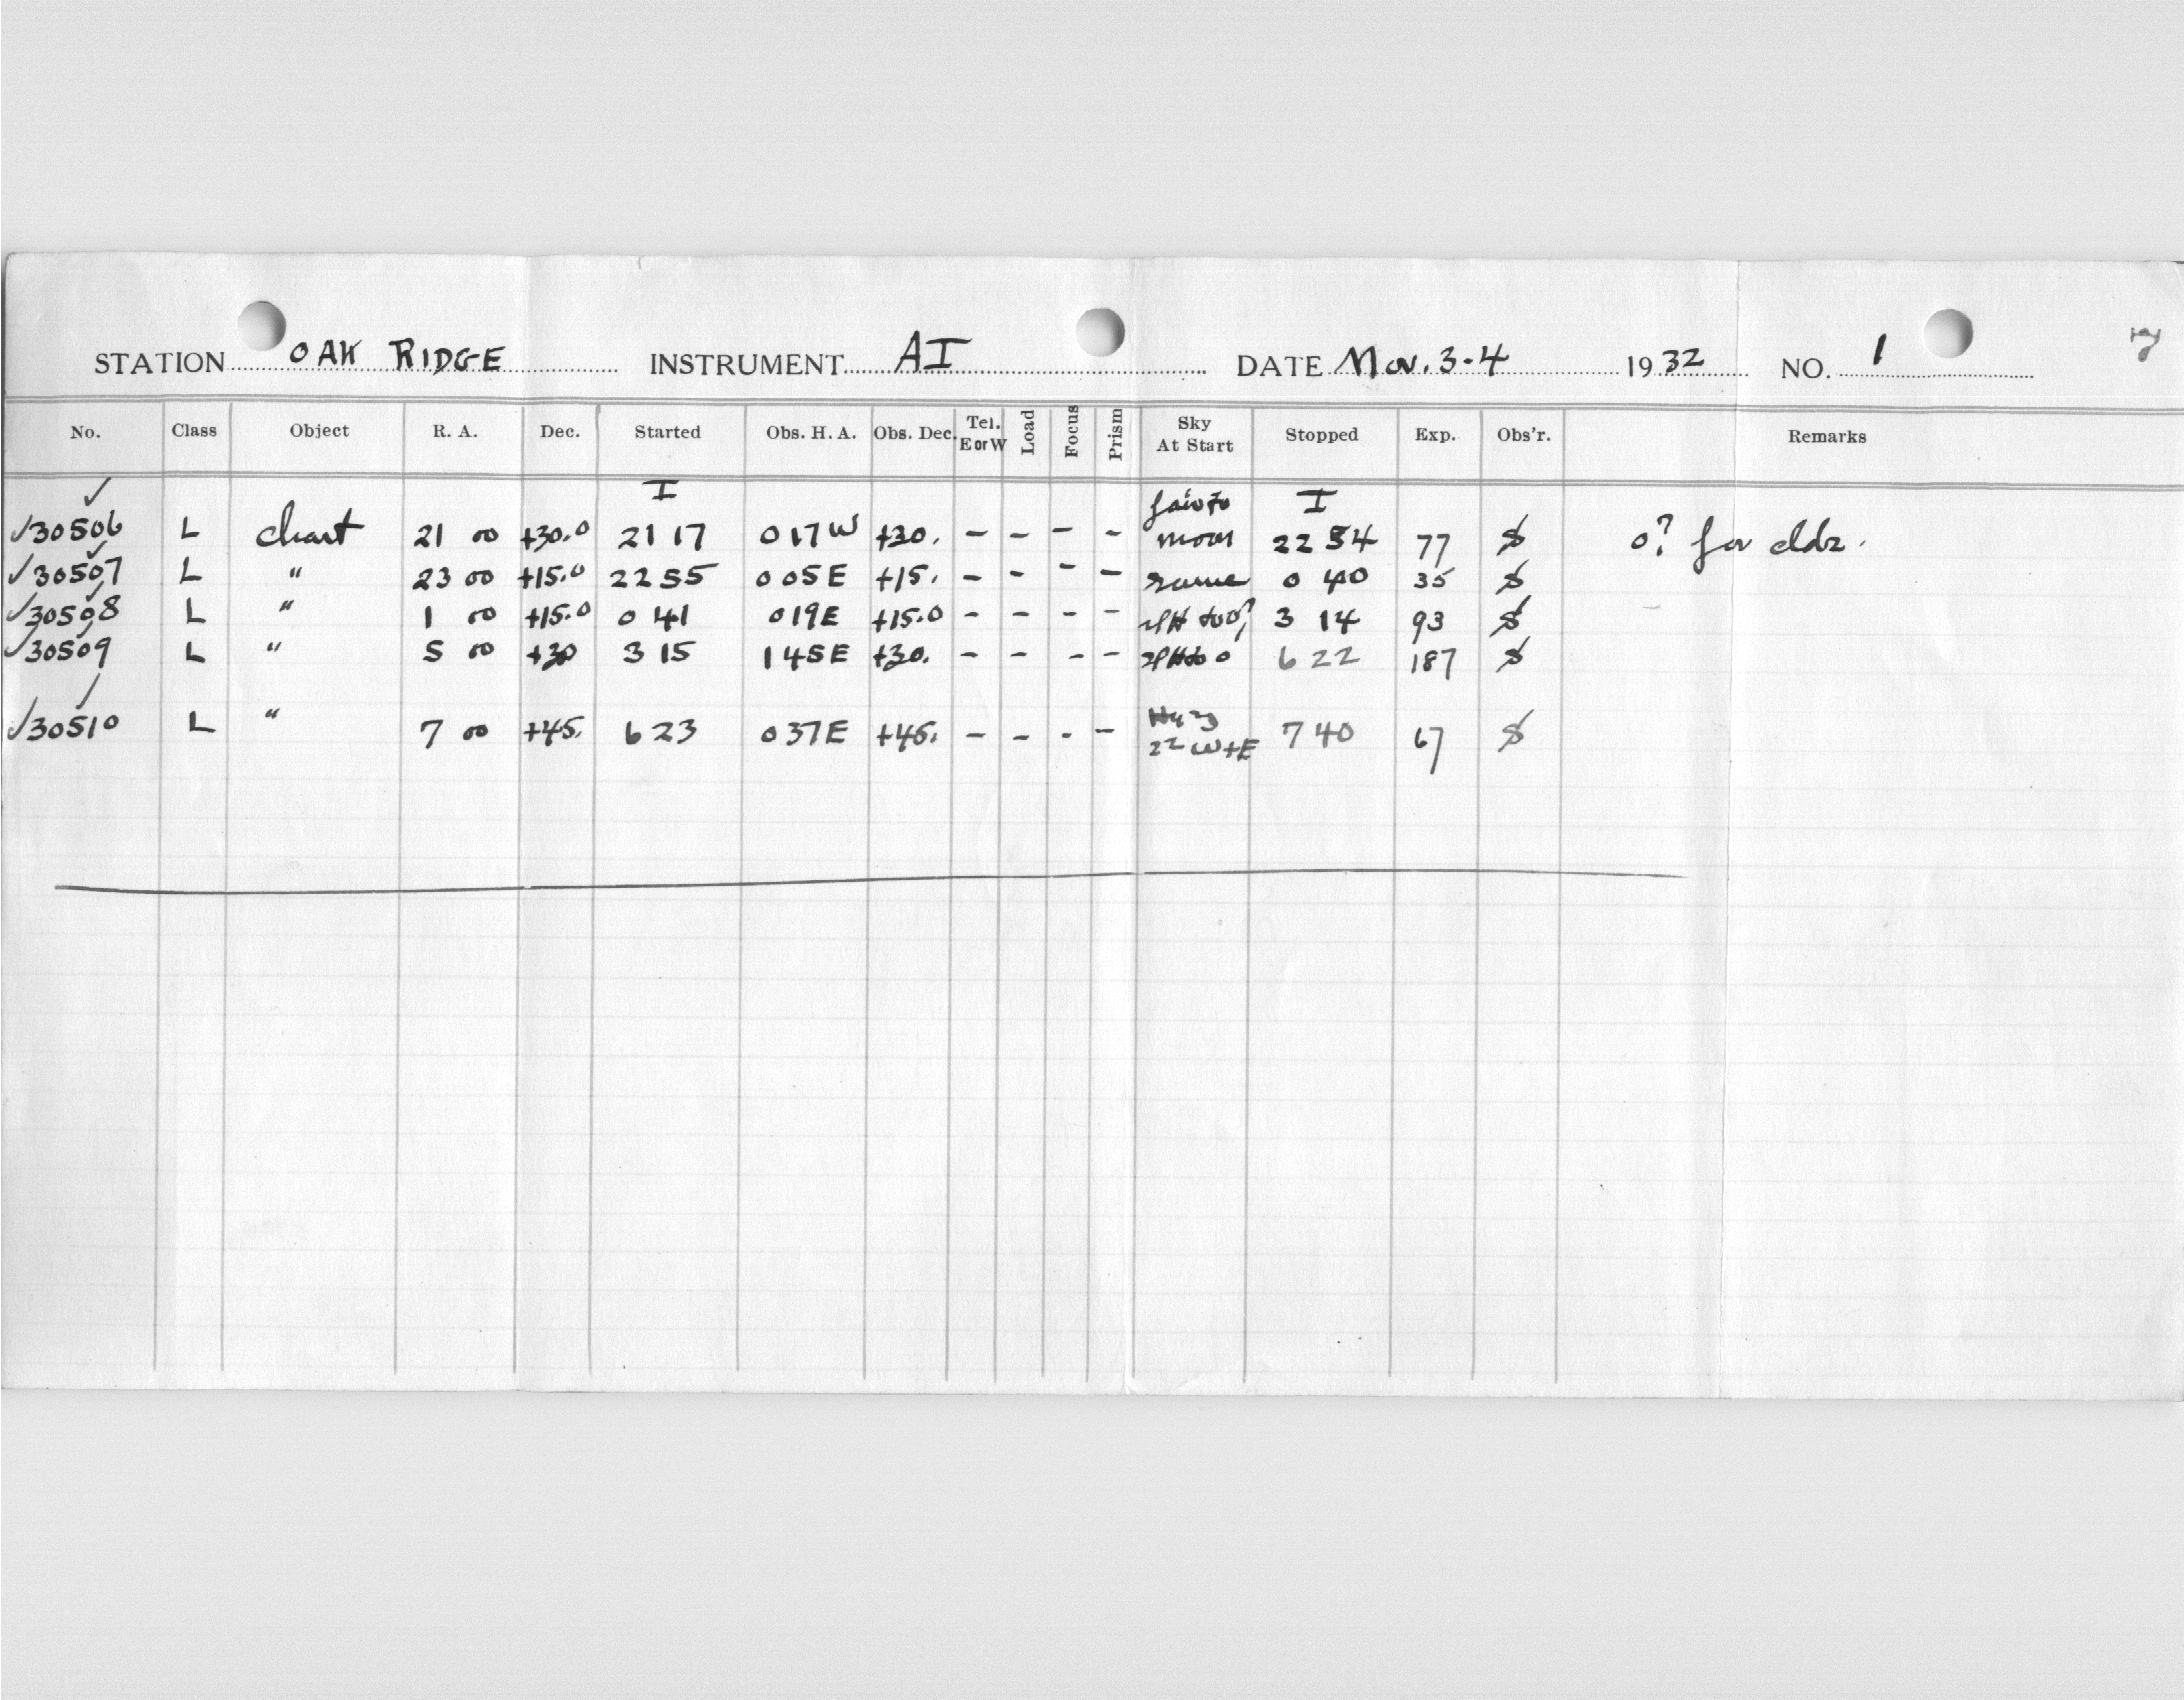 7
STATION OAK RIDGE INSTRUMENT AI DATE Nov. 3-4 1932 NO. 1
No. Class Object R. A. Dec. Started Obs. H. A. Obs. Dec. Tel. E or W Load Focus Prism Sky At Start Stopped Exp. Obs'r. Remarks
I I
✓30506 L chart 21 00 +30.0 21 17 0 17 W +30. - - - - moon 22 54 77 $ 0? for clds.
✓30507 L " 23 00 +15.0 22 55 0 05 E +15. - - - - same 0 40 35 $
✓30508 L " 1 00 +15.0 0 41 0 19 E +15.0 - - - - 3 14 93 $
✓30509 L " 5 00 +30 3 15 1 45 E +30. - - - - 6 22 187 $
✓30510 L " 7 00 +45. 6 23 0 37 E +45. - - - - W+E 7 40 67 $